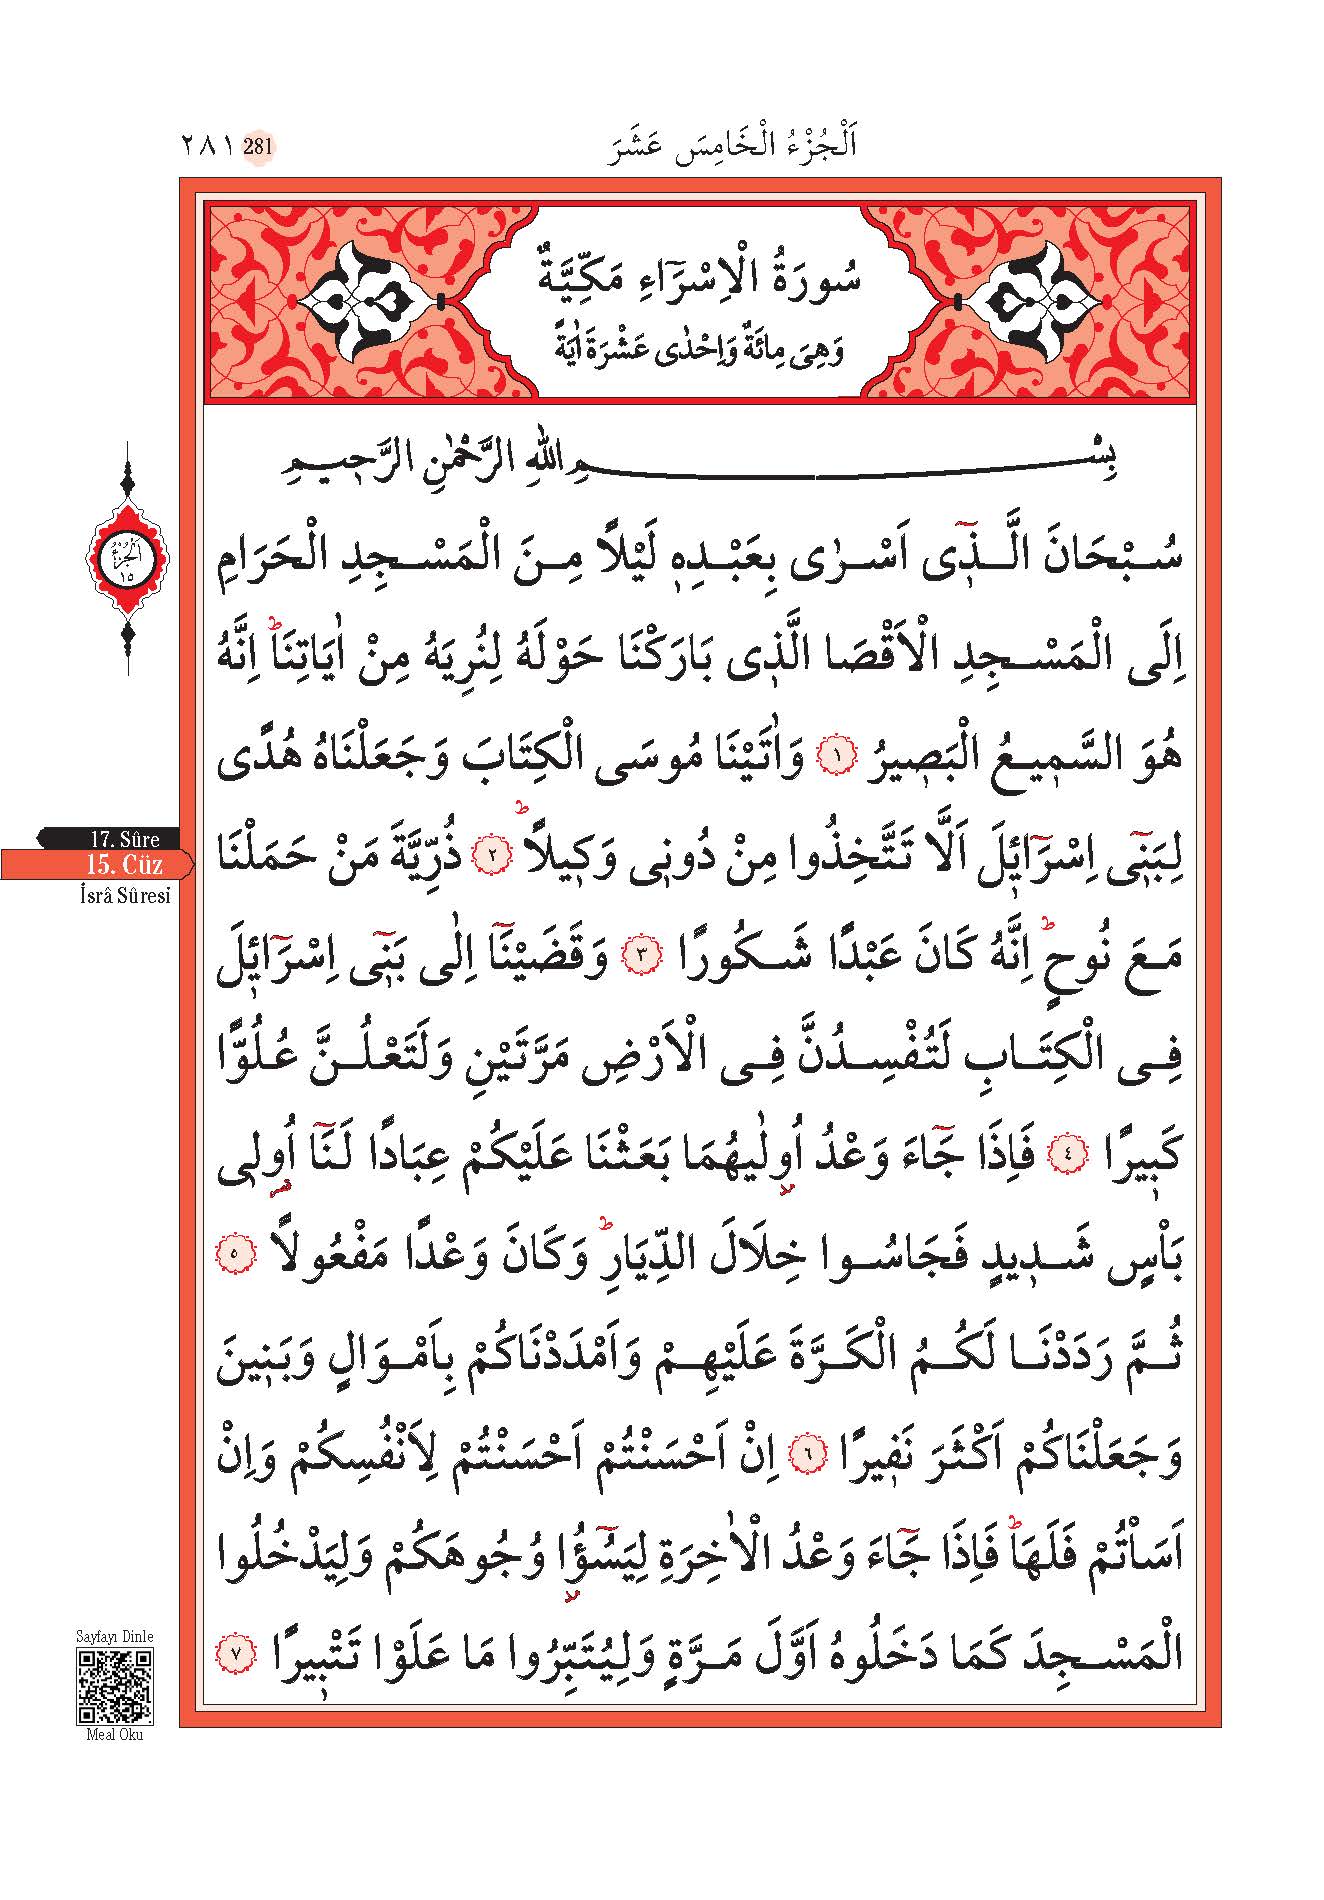 اَلْجُزْءُ الْخَامِسَ عَشَرَ
281 ٢٨١
سُورَةُ الْاِسْرَٓاءِ مَكِّيَّةٌ
وَهِىَ مِائَةٌ وَاِحْدٰى عَشْرَةَ اٰيَةً
بِسْمِ اللهِ الرَّحْمٰنِ الرَّحٖيمِ
سُبْحَانَ الَّذٖٓى اَسْرٰى بِعَبْدِهٖ لَيْلًا مِنَ الْمَسْجِدِ الْحَرَامِ
اِلَى الْمَسْجِدِ الْاَقْصَا الَّذٖى بَارَكْنَا حَوْلَهُ لِنُرِيَهُ مِنْ اٰيَاتِنَاؕ اِنَّهُ
هُوَ السَّمٖيعُ الْبَصٖيرُ ١ وَاٰتَيْنَا مُوسَى الْكِتَابَ وَجَعَلْنَاهُ هُدًى
لِبَنٖٓى اِسْرَٓائٖلَ اَلَّا تَتَّخِذُوا مِنْ دُونٖى وَكٖيلًاؕ ٢ ذُرِّيَّةَ مَنْ حَمَلْنَا
مَعَ نُوحٍؕ اِنَّهُ كَانَ عَبْدًا شَكُورًا ٣ وَقَضَيْنَٓا اِلٰى بَنٖٓى اِسْرَٓائٖلَ
فِى الْكِتَابِ لَتُفْسِدُنَّ فِى الْاَرْضِ مَرَّتَيْنِ وَلَتَعْلُنَّ عُلُوًّا
كَبٖيرًا ٤ فَاِذَا جَٓاءَ وَعْدُ اُولٰيهُمَا بَعَثْنَا عَلَيْكُمْ عِبَادًا لَنَٓا اُولٖى
بَأْسٍ شَدٖيدٍ فَجَاسُوا خِلَالَ الدِّيَارِؕ وَكَانَ وَعْدًا مَفْعُولًا ٥
ثُمَّ رَدَدْنَا لَكُمُ الْكَرَّةَ عَلَيْهِمْ وَاَمْدَدْنَاكُمْ بِاَمْوَالٍ وَبَنٖينَ
وَجَعَلْنَاكُمْ اَكْثَرَ نَفٖيرًا ٦ اِنْ اَحْسَنْتُمْ اَحْسَنْتُمْ لِاَنْفُسِكُمْ وَاِنْ
اَسَأْتُمْ فَلَهَاؕ فَاِذَا جَٓاءَ وَعْدُ الْاٰخِرَةِ لِيَسُٓؤُا وُجُوهَكُمْ وَلِيَدْخُلُوا
الْمَسْجِدَ كَمَا دَخَلُوهُ اَوَّلَ مَرَّةٍ وَلِيُتَبِّرُوا مَا عَلَوْا تَتْبٖيرًا ٧
اَلْجُزْءُ
١٥
17. Sûre
15. Cüz
İsrâ Sûresi
Sayfayı Dinle
Meal Oku